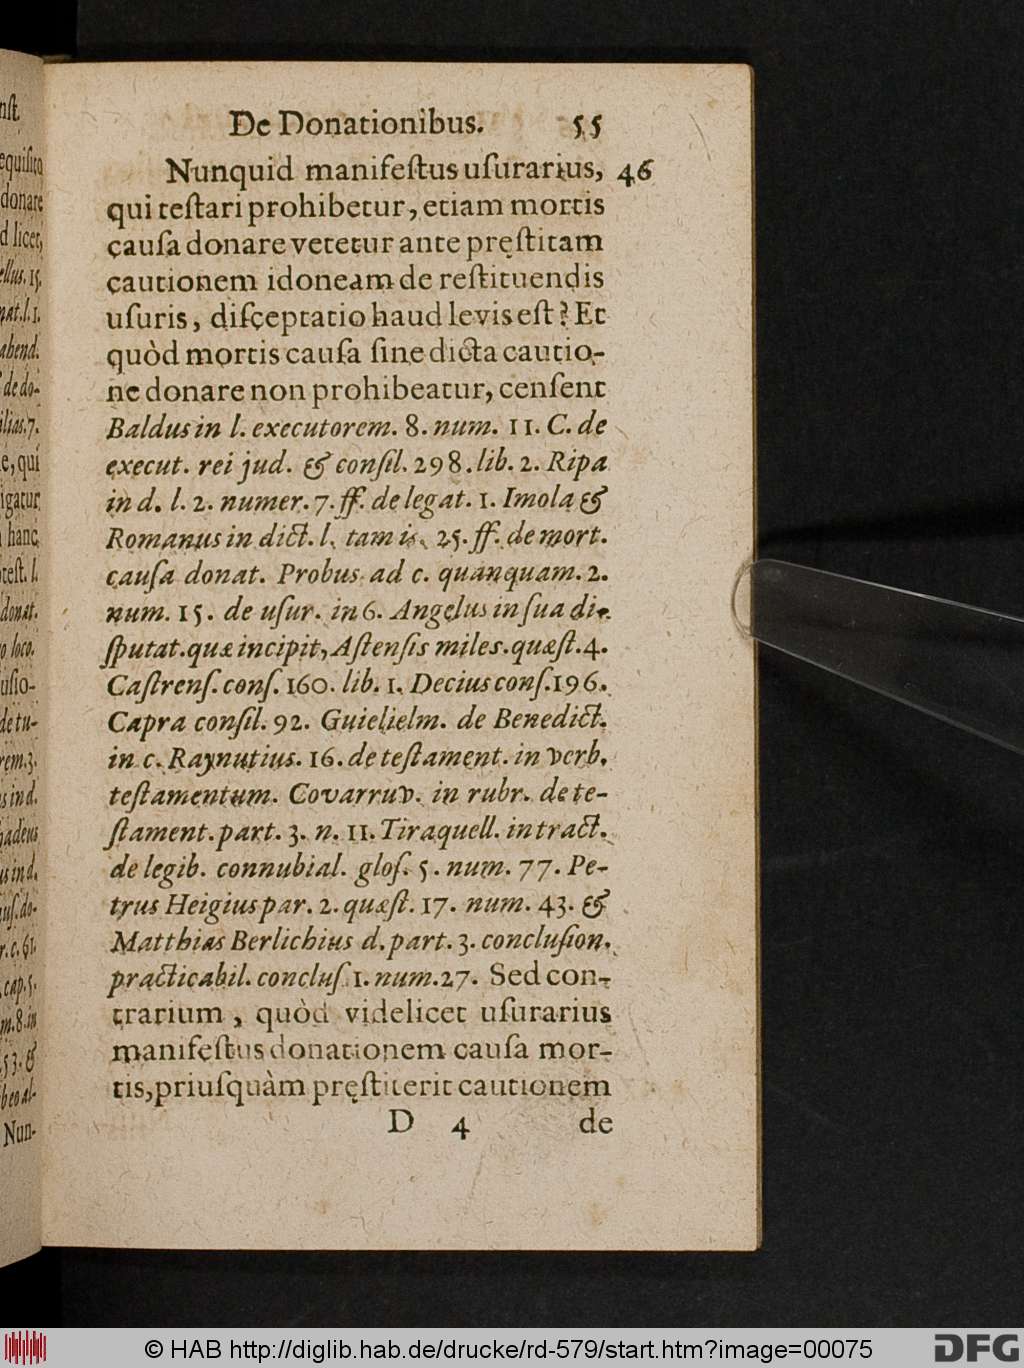 De Donationibus. 55
Nunquid manifeſtus uſurarius, 46
qui teſtari prohibetur, etiam mortis
cauſa donare vetetur ante pręſtitam
cautionem idoneam de reſtituendis
uſuris, diſceptatio haud levis eſt? Et
quòd mortis cauſa ſine dicta cautio-
ne donare non prohibeatur, cenſent
Baldus in l. executorem. 8. num. 11. C. de
execut. rei jud. & conſil. 298. lib. 2. Ripa
in d. l. 2. numer. 7. ff. de legat. 1. Imola &
Romanus in dict. l. tam is. 25. ff. de mort.
cauſa donat. Probus ad c. quanquam. 2.
num. 15. de uſur. in 6. Angelus in ſua di-
ſputat. quæ incipit, Aſtenſis miles. quæſt. 4.
Caſtrenſ. conſ. 160. lib. 1. Decius conſ. 196.
Capra conſil. 92. Guielielm. de Benedict.
in c. Raynutius. 16. de teſtament. in verb.
teſtamentum. Covarruv. in rubr. de te-
ſtament. part. 3. n. 11. Tiraquell. in tract.
de legib. connubial. gloſ. 5. num. 77. Pe-
trus Heigius par. 2. quæſt. 17. num. 43. &
Matthias Berlichius d. part. 3. concluſion.
practicabil. concluſ 1. num. 27. Sed con-
trarium, quòd videlicet uſurarius
manifeſtus donationem cauſa mor-
tis, priuſquàm pręſtiterit cautionem
D 4 de
© HAB http://diglib.hab.de/drucke/rd-579/start.htm?image=00075
DFG